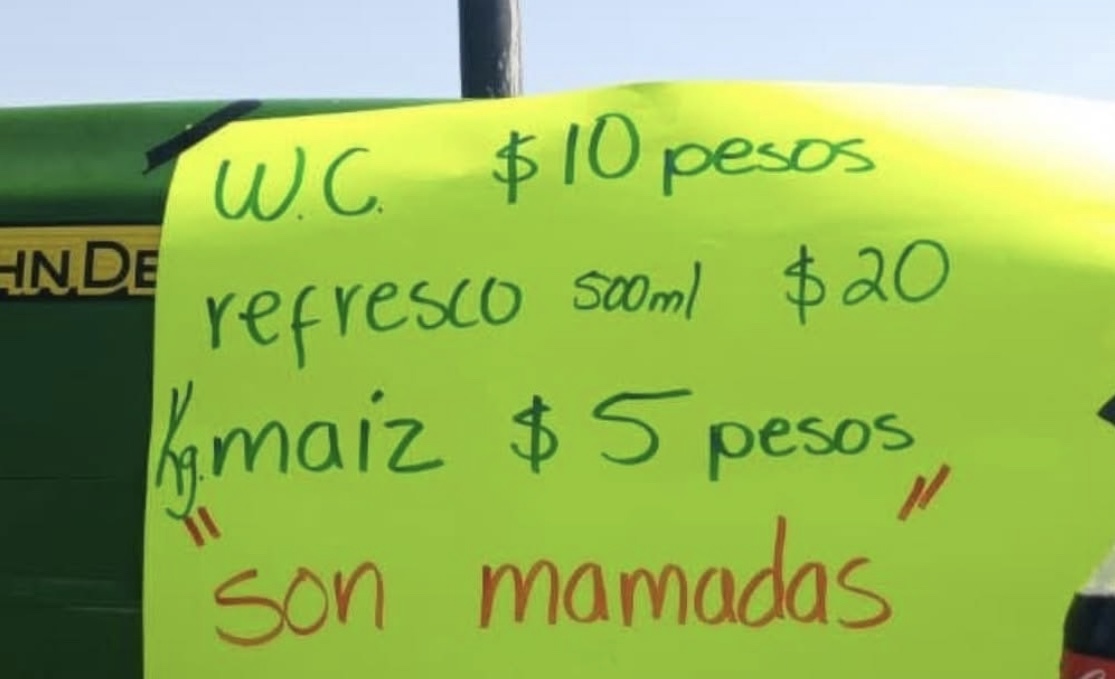 W.C. $10 pesos
refresco 500ml $20
Kg. maiz $5 pesos
"son mamadas"
HN DE